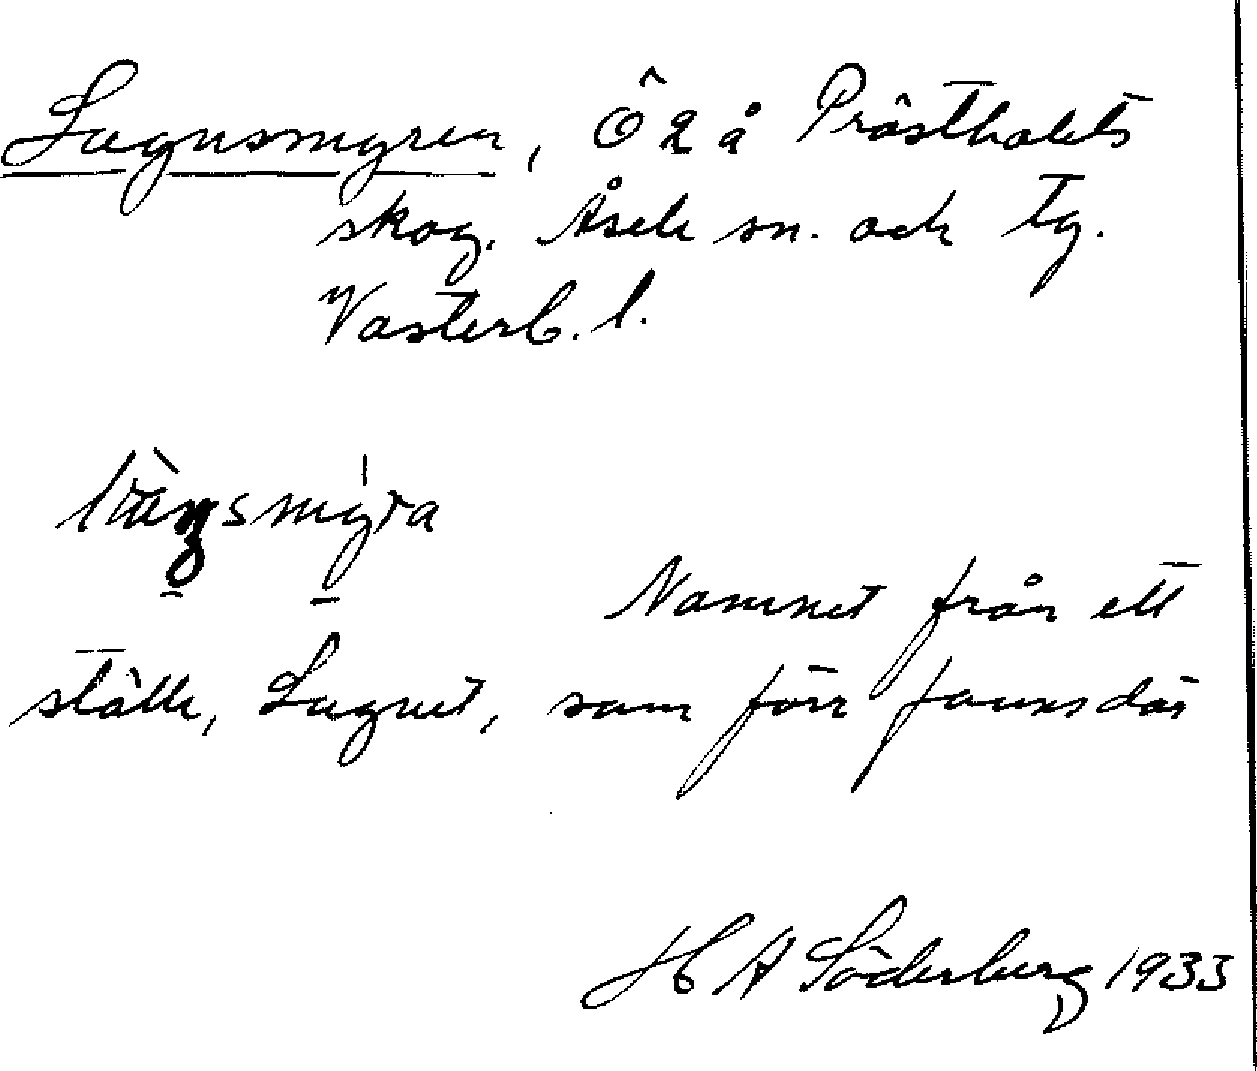 Lugnsmyren, Ö 2 å Prästbolets
skog. Åsele sn. och tg.
Västerb. l.
Namnet från ett
ställe, Lugnet, som förr fanns där
H A Söderberg 1933